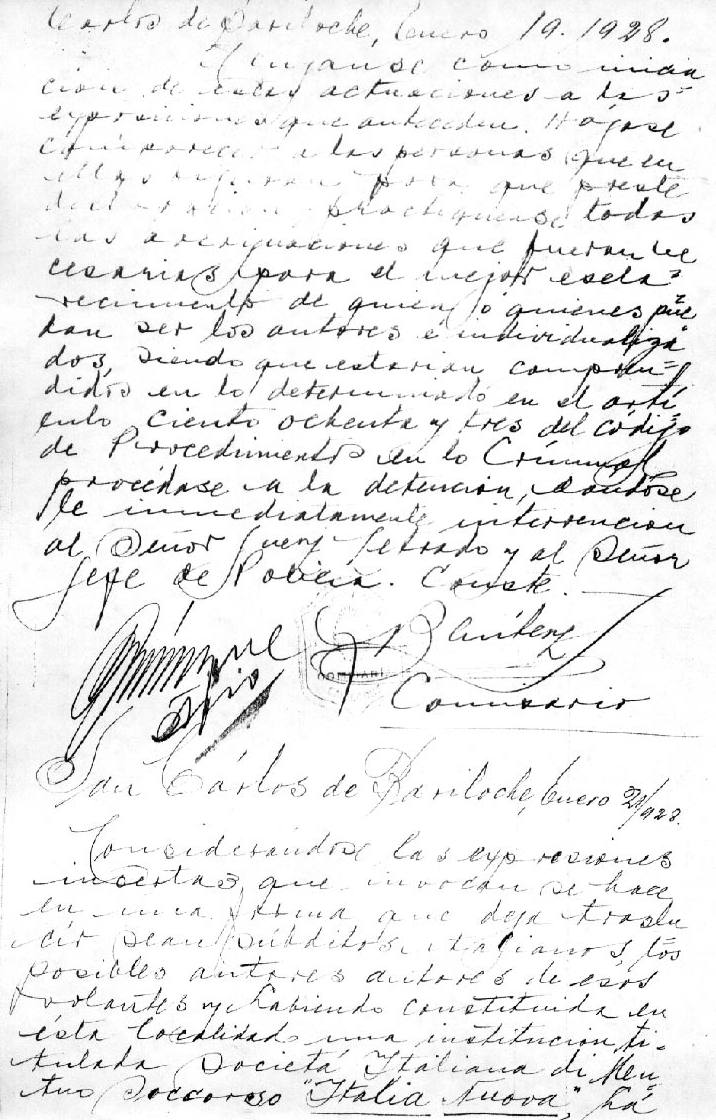 Carlos de Bariloche, Enero 19. 1928.
Tenganse como inicia
cion de estas actuaciones a las
exposiciones que anteceden. Hágase
comparecer a las personas que en
ellas figuran para que preste
declaracion, practiquense todas
las averiguaciones que fueran ne
cesarias para el mejor escla=
recimiento de quien, o quienes pue
dan ser los autores e individualiza
dos, siendo que estarian compren=
didos en lo determinado en el artí=
culo ciento ochenta y tres del código
de Procedimientos en lo Criminal
procédase a la detencion, dandose
le inmediatamente intervencion
al Señor Juez Letrado y al Señor
Jefe de Policia. Conste.
Comisario
San Cárlos de Bariloche, Enero 21/928.
Considerándose las expresiones
insertas, que invocan se hace
en una forma que deja traslu
cir sean súbditos italianos, los
posibles autores autores de esos
volantes y habiendo constituida en
ésta localidad una institucion ti-
tulada Societá Italiana di Meu-
tuo Soccorso "Italia Nuova" há